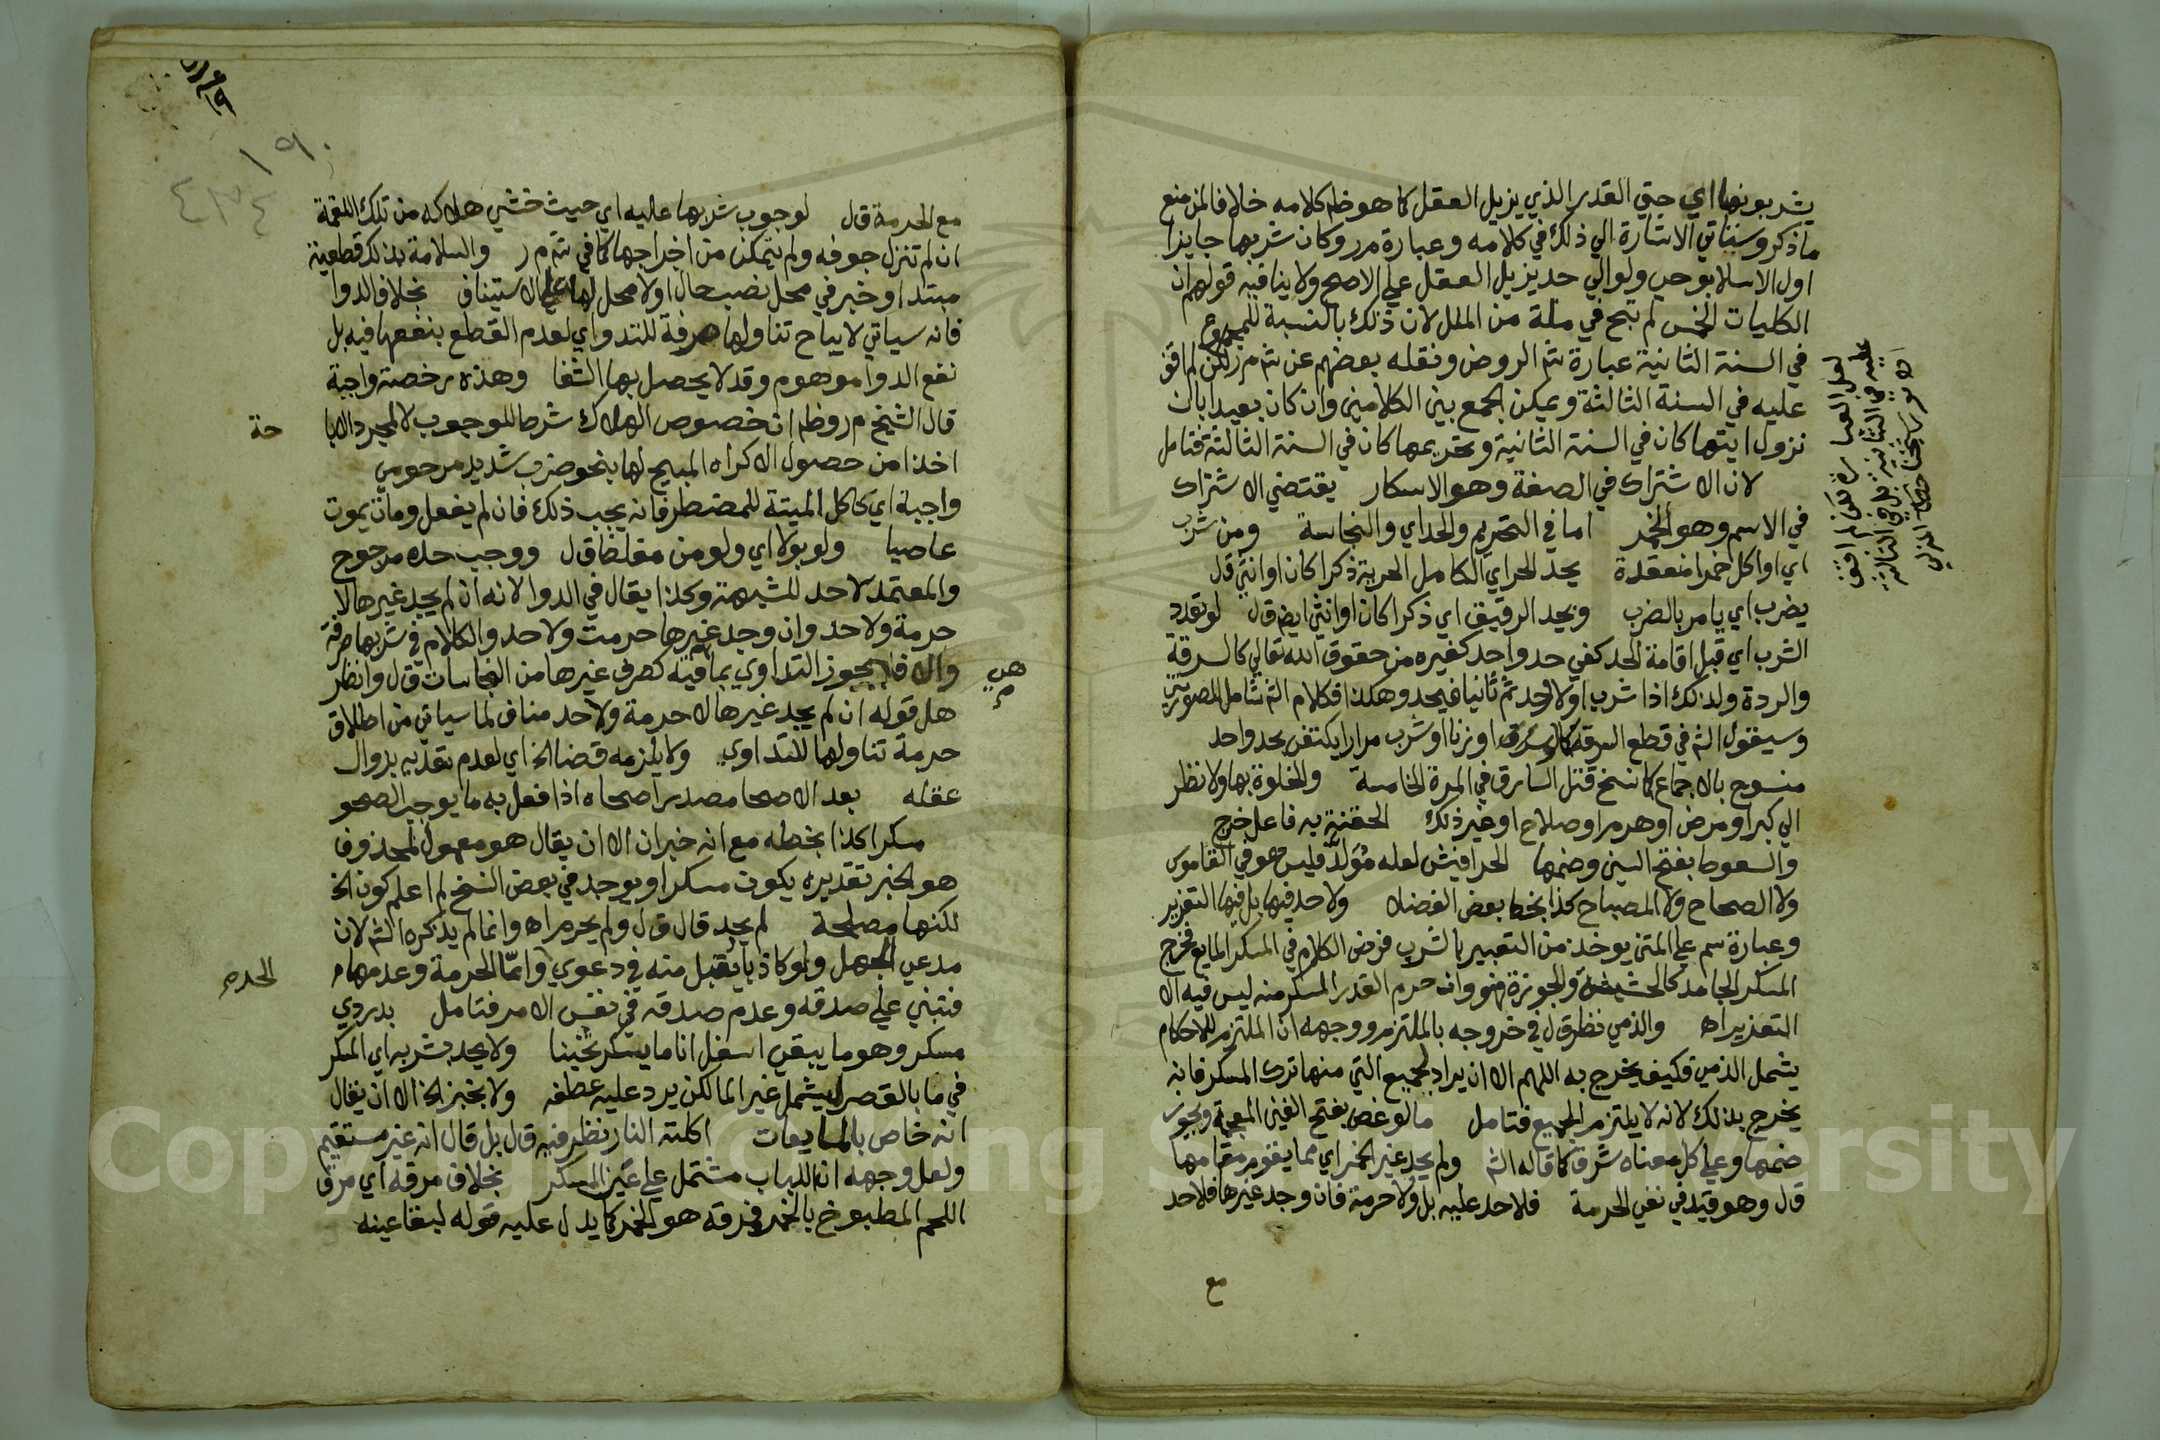 يشربونها اي حتي القدر الذي يزيل العقل كما هو ظ كلامه خلافا لمن منع
ما ذكر وسياتي الاشارة الي ذلك في كلامه وعبارة م ر وكان شربها جايزا
اول الاسلام بوحي ولو الي حد يزيل العقل علي الاصح ولا ينافيه قولهم ان
الكليات الخمس لم تبح في ملة من الملل لان ذلك بالنسبة للمجموع
في السنة الثانية عبارة شم الروض ونقله بعضهم عن شم م ر لكن لم اقف
عليه في السنة الثالثة ويمكن الجمع بين الكلامين وان كان بعيدا بان
نزول ايتها كان في السنة الثانية وتحريمها كان في السنة الثالثة فتامل
لان الاشتراك في الصفة وهو الاسكار يقتضي الاشتراك
في الاسم وهو الخمر اما في التحريم والحد اي والنجاسة ومن شرب
اي او اكل خمرا منعقدة يحد الحر اي الكامل الحرية ذكرا كان او انثي ق ل
يضرب اي يامر بالضرب ويحد الرقيق اي ذكرا كان او انثي ايض ق ل لو تعدد
الشرب اي قبل اقامة الحد كفي حد واحد كغيره من حقوق الله تعالي كالسرقة
والردة ولذلك اذا شرب اولا وحد ثم ثانيا فيحد وهكذا فكلام الشم شامل للصورتين
وسيقول الشم في قطع السرقة كما لو سرق او زنا او شرب مرارا يكتفي بحد واحد
منسوخ بالاجماع كما نسخ قتل السارق في المرة الخامسة والغلوة بها ولا نظر
الي كبر او مرض او هرم او صلاح او غير ذلك الحقنة به فاعل خرج
والسعوط بفتح السين وضمها الحرافيش لعله مولد فليس هو في القاموس
ولا الصحاح ولا المصباح كذا بخط بعض الفضلا ولا حد فيها بل فيها التعزير
وعبارة سم علي المتن يوخذ من التعبير بالشرب فرض الكلام في المسكر المايع فخرج
المسكر الجامد كالحشيش والجوزة فهو وان حرم القدر المسكر منه ليس فيه الا
التعزير اه والذمي نظر ق ل في خروجه بالملتزم ووجهه ان الملتزم للاحكام
يشمل الذمي فكيف يخرج به اللهم الا ان يراد لجميع التي منها ترك المسكر فانه
يخرج بذلك لانه لا يلتزم الجميع فتامل ما لو غص بفتح الغين المعجمة ويجوز
ضمها وعلي كل معناه شرق كما قاله الشم ولم يجد غير الخمر اي مما يقوم مقامها
ق ل وهو قيد في نفي الحرمة فلا حد عليه بل ولا حرمة فان وجد غيرها فلا حد
مع
لعل العبارة لكن لم اقف
عليه في الثانية بل في الثالثة
مع الحرمة ق ل لوجوب شربها عليه اي حيث خشي هلاكه من تلك اللقمة
ان لم تنزل جوفه ولم يتمكن من اخراجها كما في شم م ر والسلامة بذلك قطعية
مبتدا وخبر في محل نصب حال اولا محل لها علي الاستيناف بخلاف الدوا
فانه سياتي لا يباح تناولها صرفة للتدواي لعدم القطع بنفعها فيه بل
نفع الدوا موهوم وقد لا يحصل بها الشفا وهذه رخصة واجبة
قال الشيخ م ر وظ ان خصوص الهلاك شرط للوجوب لا لمجرد الابا
حة
اخذا من حصول الاكراه المبيح لها بنحو ضرب شديد مرحومي
واجبة اي كاكل الميتة للمضطر فانه يجب ذلك فان لم يفعل ومات يموت
عاصيا ولو بولا اي ولو من مغلظ ق ل ووجب حده مرجوح
والمعتمد لا حد للشبهة وكذا يقال في الدوا لانه ان لم يجد غيرها لا
حرمة ولا حد وان وجد غيرها حرمت ولا حد والكلام في شربها صرفة
والا فيجوز التداوي بما فيه كصرف غيرها من النجاسات ق ل وانظر
هل قوله ان لم يجد غيرها لا حرمة ولا حد مناف لما سياتي من اطلاق
حرمة تناولها للتداوي ولا يلزمه قضا الخ اي لعدم تعديه بزوال
عقله بعد الاصحا مصدر اصحاه اذا فعل به ما يوجب الصحو
مسكرا كذا بخطه مع انه خبر ان الا ان يقال هو معمول لمحذوف
هو الخبر تقديره يكون مسكرا ويوجد في بعض النسخ لم اعلم كونه الخ
لكنها مصلحة لم يحد قال ق ل ولم يحرم اه وانما لم يذكره الشم لان
مدعي الجهل ولو كاذبا يقبل منه في دعوي وامّا الحرمة وعدمها
الحد م
فتبني علي صدقه وعدم صدقه في نفس الامر فتامل بدردي
مسكر وهو ما يبقي اسفل انا ما يسكر ثخينا ولا يحد بشربه اي المسكر
في ما بالقصر ليشمل غير الما لكن يرد عليه عطفه ولا بخبز الخ الا ان يقال
انه خاص بالمايعات اكلته النار نظر فيه ق ل بل قال انه غير مستقيم
ولعل وجهه ان اللباب مشتمل علي عين المسكر بخلاف مرقه اي مرق
اللحم المطبوخ بالخمر فمرقه هو الخمر كما يدل عليه قوله لبقا عينه